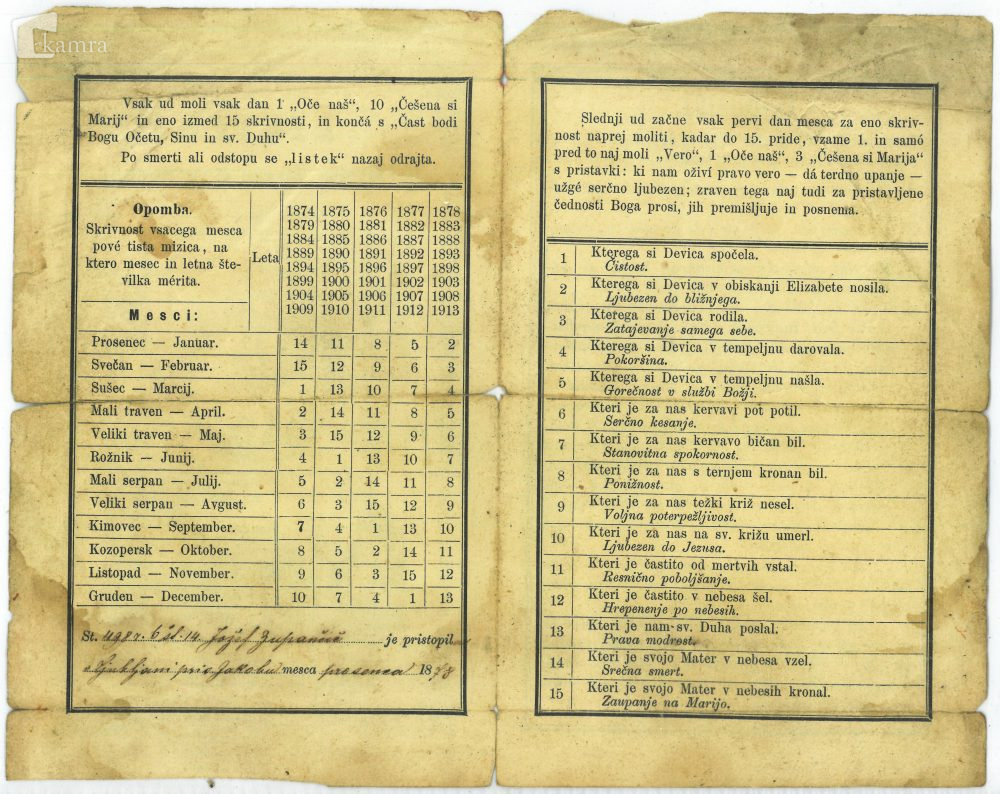 kamra
Vsak ud moli vsak dan 1 „Oče naš“, 10 „Češena si
Marij“ in eno izmed 15 skrivnosti, in končá s „Čast bodi
Bogu Očetu, Sinu in sv. Duhu“.
Po smerti ali odstopu se „listek“ nazaj odrajta.
Opomba.
Skrivnost vsacega mesca
pové tista mizica, na
ktero mesec in letna šte-
vilka mérita.
Mesci:
Leta
1874 1875 1876 1877 1878
1879 1880 1881 1882 1883
1884 1885 1886 1887 1888
1889 1890 1891 1892 1893
1894 1895 1896 1897 1898
1899 1900 1901 1902 1903
1904 1905 1906 1907 1908
1909 1910 1911 1912 1913
Prosenec — Januar. 14 11 8 5 2
Svečan — Februar. 15 12 9 6 3
Sušec — Marcij. 1 13 10 7 4
Mali traven — April. 2 14 11 8 5
Veliki traven — Maj. 3 15 12 9 6
Rožnik — Junij. 4 1 13 10 7
Mali serpan — Julij. 5 2 14 11 8
Veliki serpan — Avgust. 6 3 15 12 9
Kimovec — September. 7 4 1 13 10
Kozopersk — Oktober. 8 5 2 14 11
Listopad — November. 9 6 3 15 12
Gruden — December. 10 7 4 1 13
Št. Jožef Zupančič je pristopil
v Ljubljani pri s. Jakobu mesca prosenca 1878
Slednji ud začne vsak pervi dan mesca za eno skriv-
nost naprej moliti, kadar do 15. pride, vzame 1. in samó
pred to naj moli „Vero“, 1 „Oče naš“, 3 „Češena si Marija“
s pristavki: ki nam oživí pravo vero — dá terdno upanje —
užgé serčno ljubezen; zraven tega naj tudi za pristavljene
čednosti Boga prosi, jih premišljuje in posnema.
1 Kterega si Devica spočela.
Čistost.
2 Kterega si Devica v obiskanji Elizabete nosila.
Ljubezen do bližnjega.
3 Kterega si Devica rodila.
Zatajevanje samega sebe.
4 Kterega si Devica v tempeljnu darovala.
Pokoršina.
5 Kterega si Devica v tempeljnu našla.
Gorečnost v službi Božji.
6 Kteri je za nas kervavi pot potil.
Serčno kesanje.
7 Kteri je za nas kervavo bičan bil.
Stanovitna spokornost.
8 Kteri je za nas s ternjem kronan bil.
Ponižnost.
9 Kteri je za nas težki križ nesel.
Voljna poterpežljivost.
10 Kteri je za nas na sv. križu umerl.
Ljubezen do Jezusa.
11 Kteri je častito od mertvih vstal.
Resnično poboljšanje.
12 Kteri je častito v nebesa šel.
Hrepenenje po nebesih.
13 Kteri je nam sv. Duha poslal.
Prava modrost.
14 Kteri je svojo Mater v nebesa vzel.
Srečna smert.
15 Kteri je svojo Mater v nebesih kronal.
Zaupanje na Marijo.